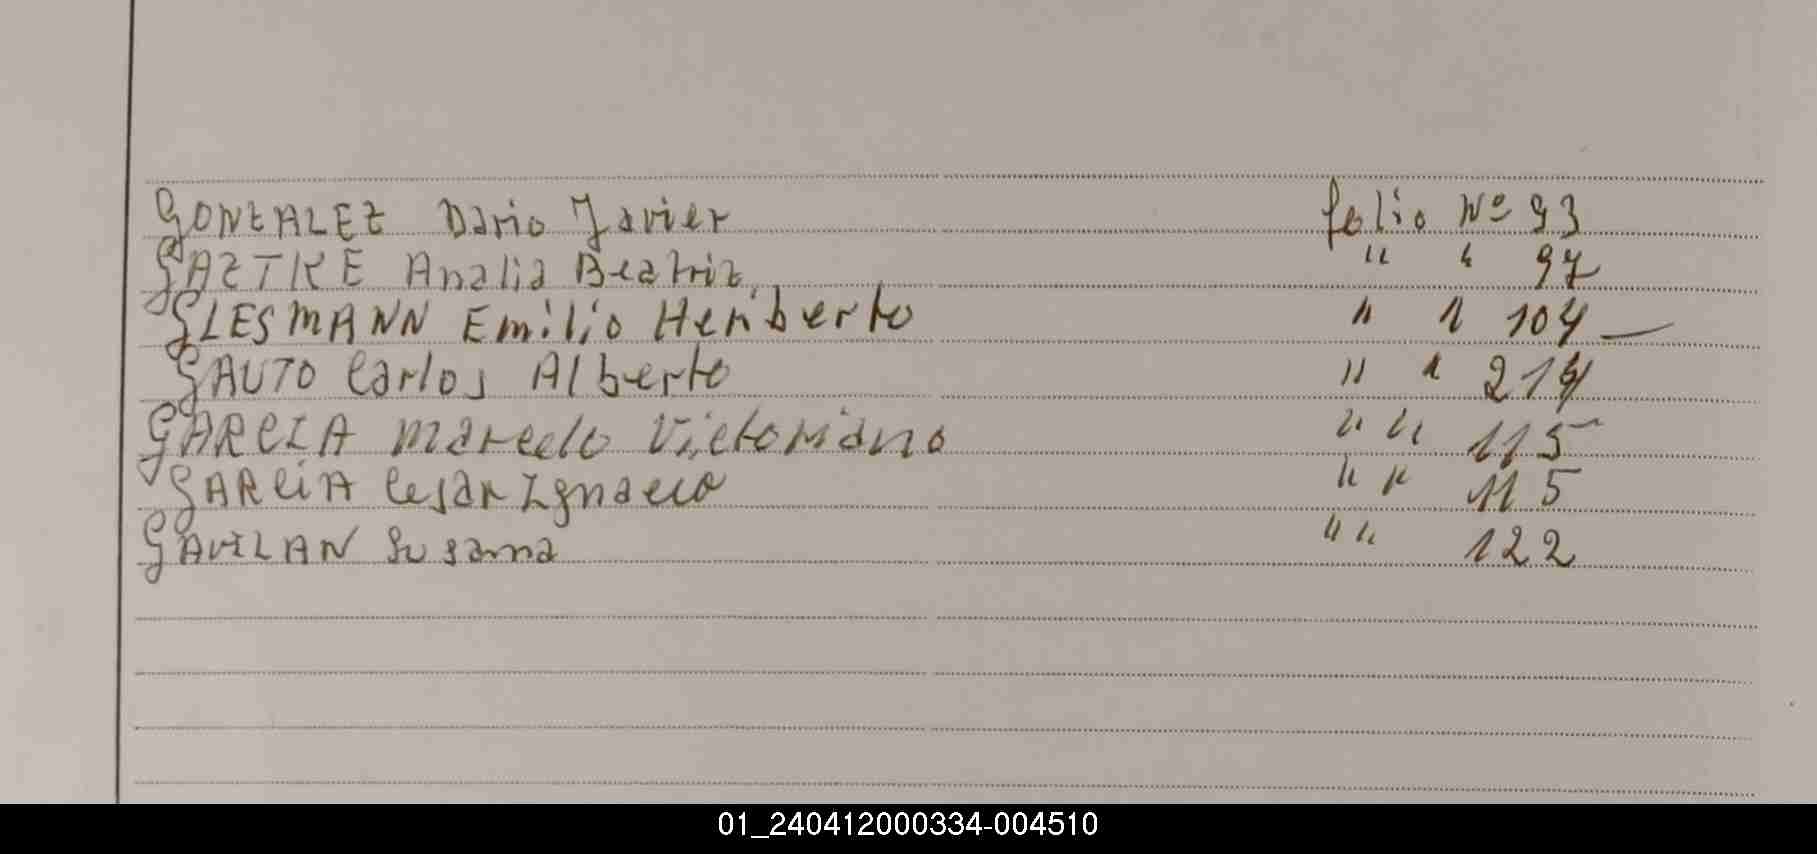 GONZALEZ Dario Javier folio Nº 93
GAZTKE Analia Beatriz, " " 97
GLESMANN Emilio Heriberto " " 104
GAUTO Carlos Alberto " "
GARCIA Marcelo Victoriano " " 115
GARCIA Cesar Ignacio " " 115
GAVILAN Susana " " 122
01_240412000334-004510